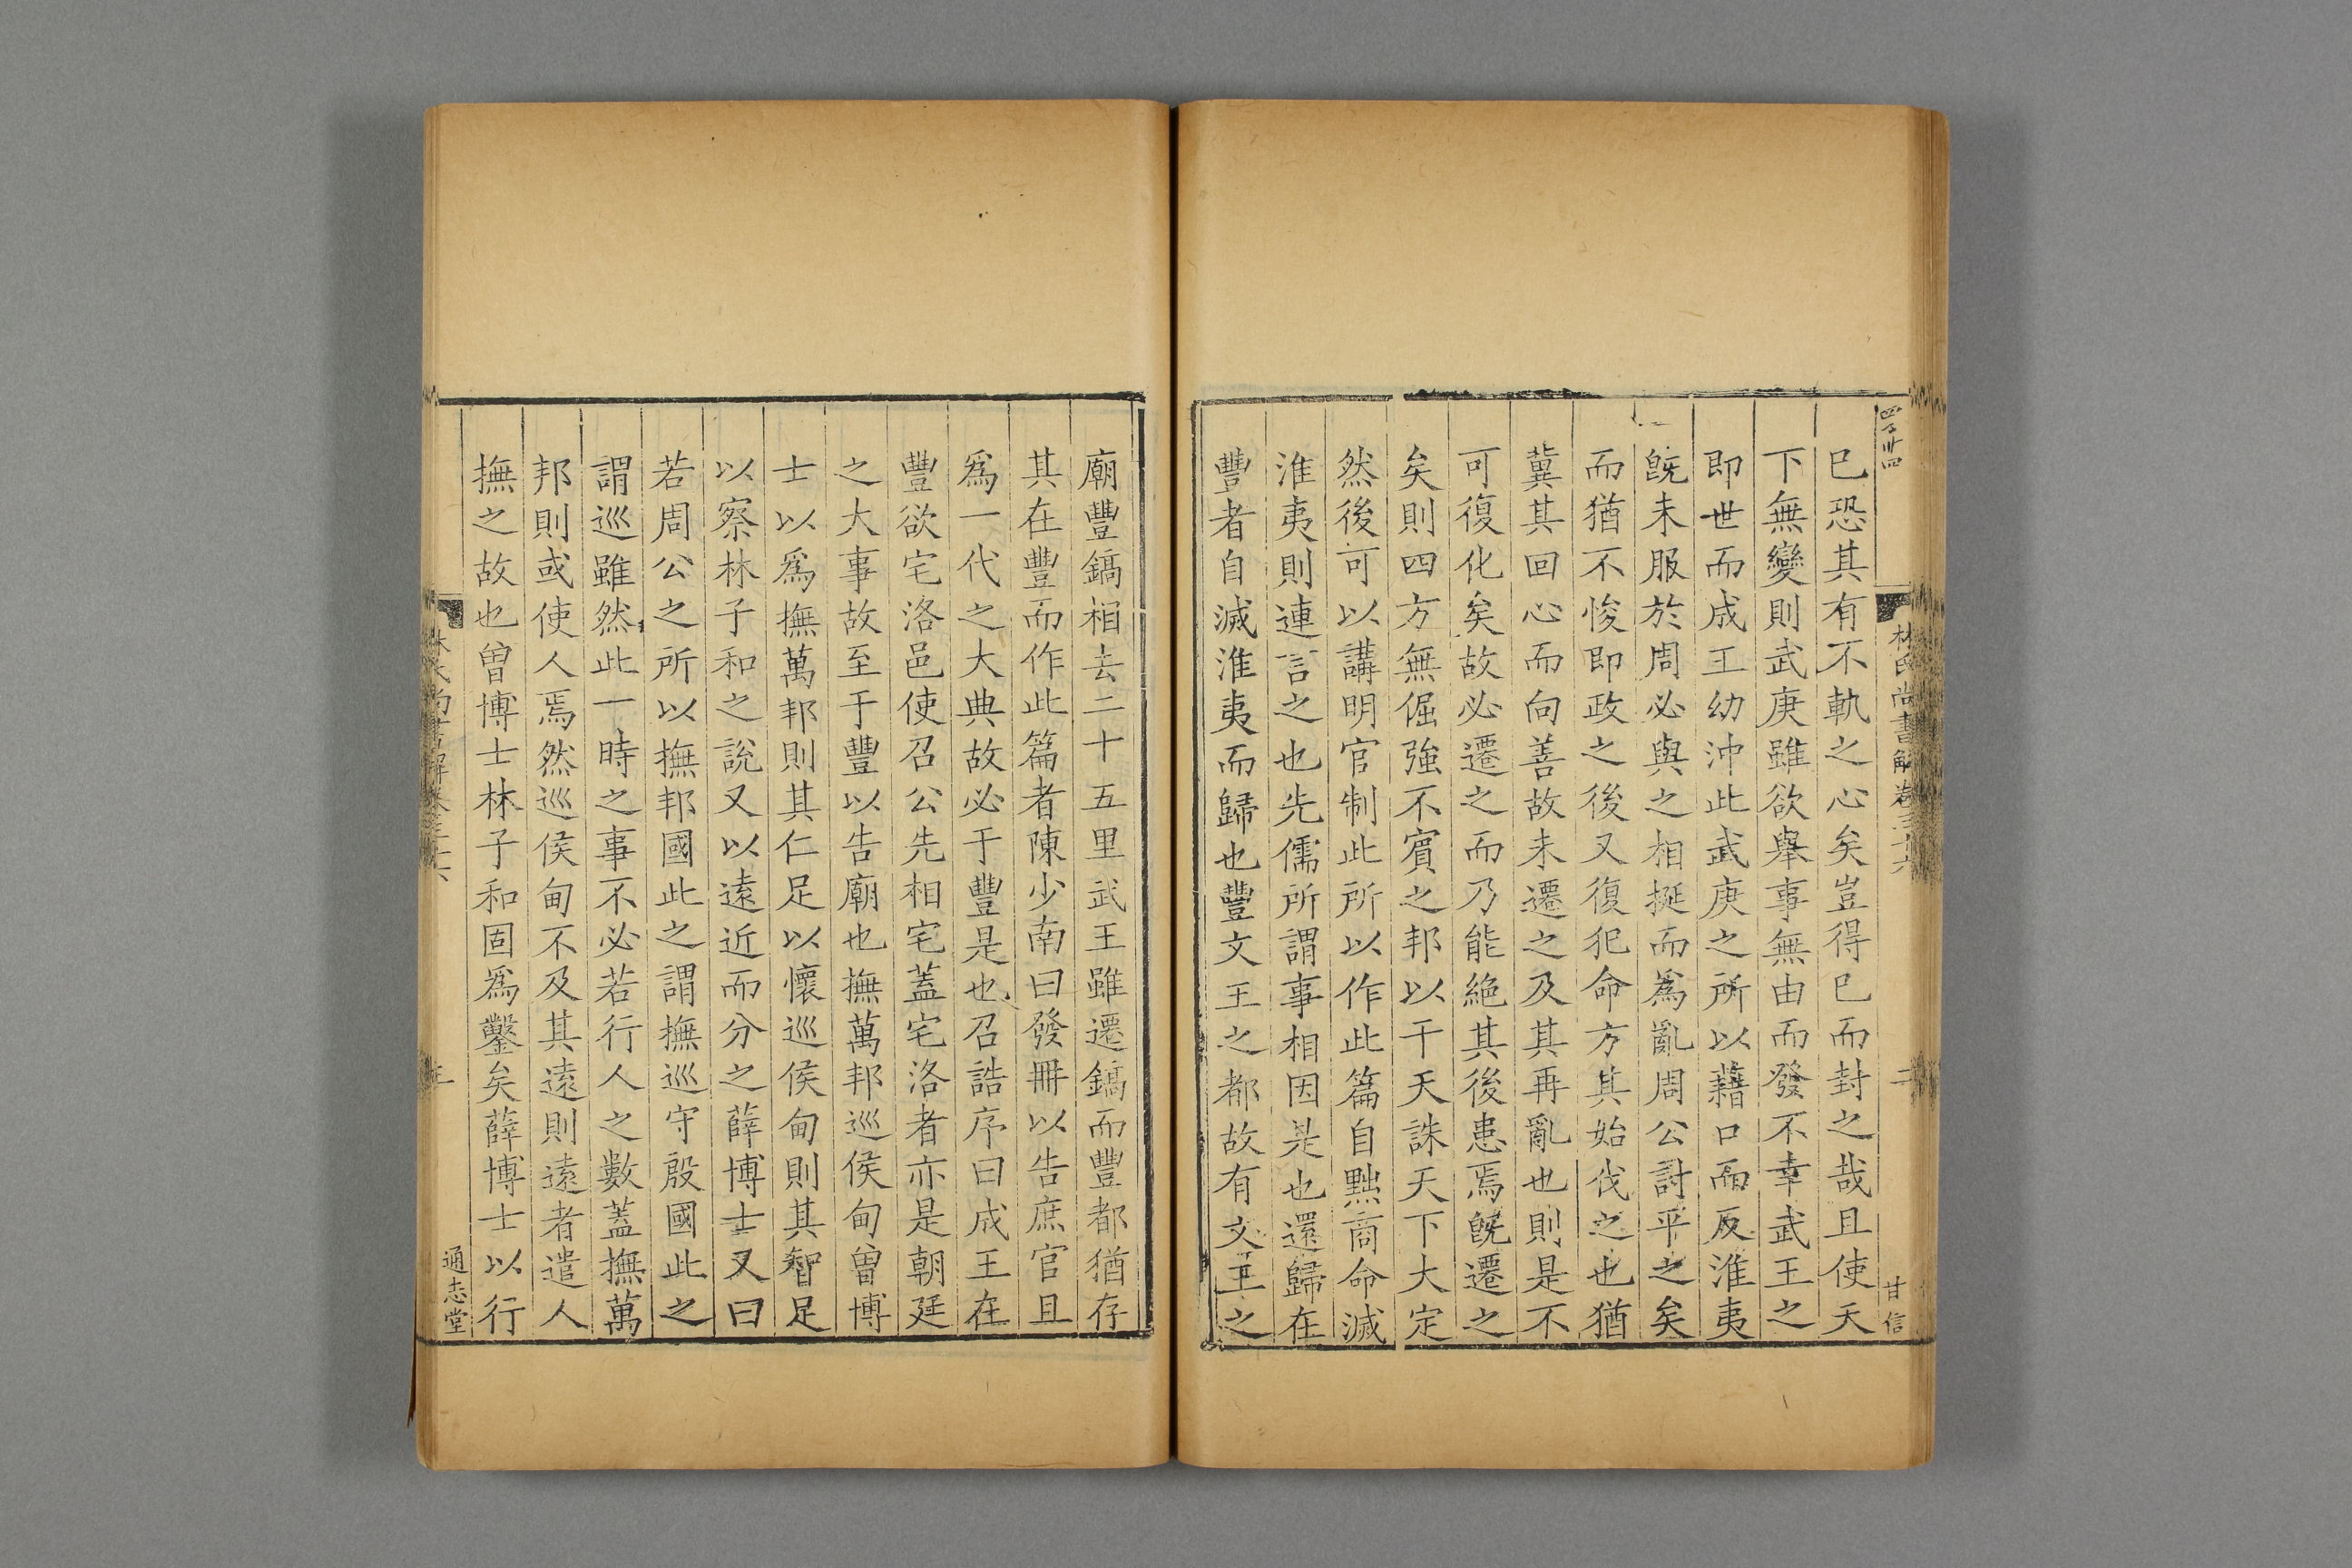 林氏尚書解卷三十六
二
甘信
巳恐其有不軌之心矣豈得巳而封之哉且使天
下無變則武庚雖欲舉事無由而發不幸武王之
即世而成王幼沖此武庚之所以藉口而反淮夷
旣未服於周必與之相挻而爲亂周公討平之矣
而猶不悛即政之後又復犯命方其始伐之也猶
冀其回心而向善故未遷之及其再亂也則是不
可復化矣故必遷之而乃能絶其後患焉旣遷之
矣則四方無倔強不賓之邦以干天誅天下大定
然後可以講明官制此所以作此篇自黜商命滅
淮夷則連言之也先儒所謂事相因是也還歸在
豐者自滅淮夷而歸也豐文王之都故有文王之
廟豐鎬相去二十五里武王雖遷鎬而豐都猶存
其在豐而作此篇者陳少南曰發冊以告庶官且
爲一代之大典故必于豐是也召誥序曰成王在
豐欲宅洛邑使召公先相宅蓋宅洛者亦是朝廷
之大事故至于豐以告廟也撫萬邦巡侯甸曾博
士以爲撫萬邦則其仁足以懷巡侯甸則其智足
以察林子和之說又以遠近而分之薛博士又曰
若周公之所以撫邦國此之謂撫巡守殷國此之
謂巡雖然此一時之事不必若行人之數蓋撫萬
邦則或使人焉然巡侯甸不及其遠則遠者遣人
撫之故也曾博士林子和固爲鑿矣薛博士以行
通志堂